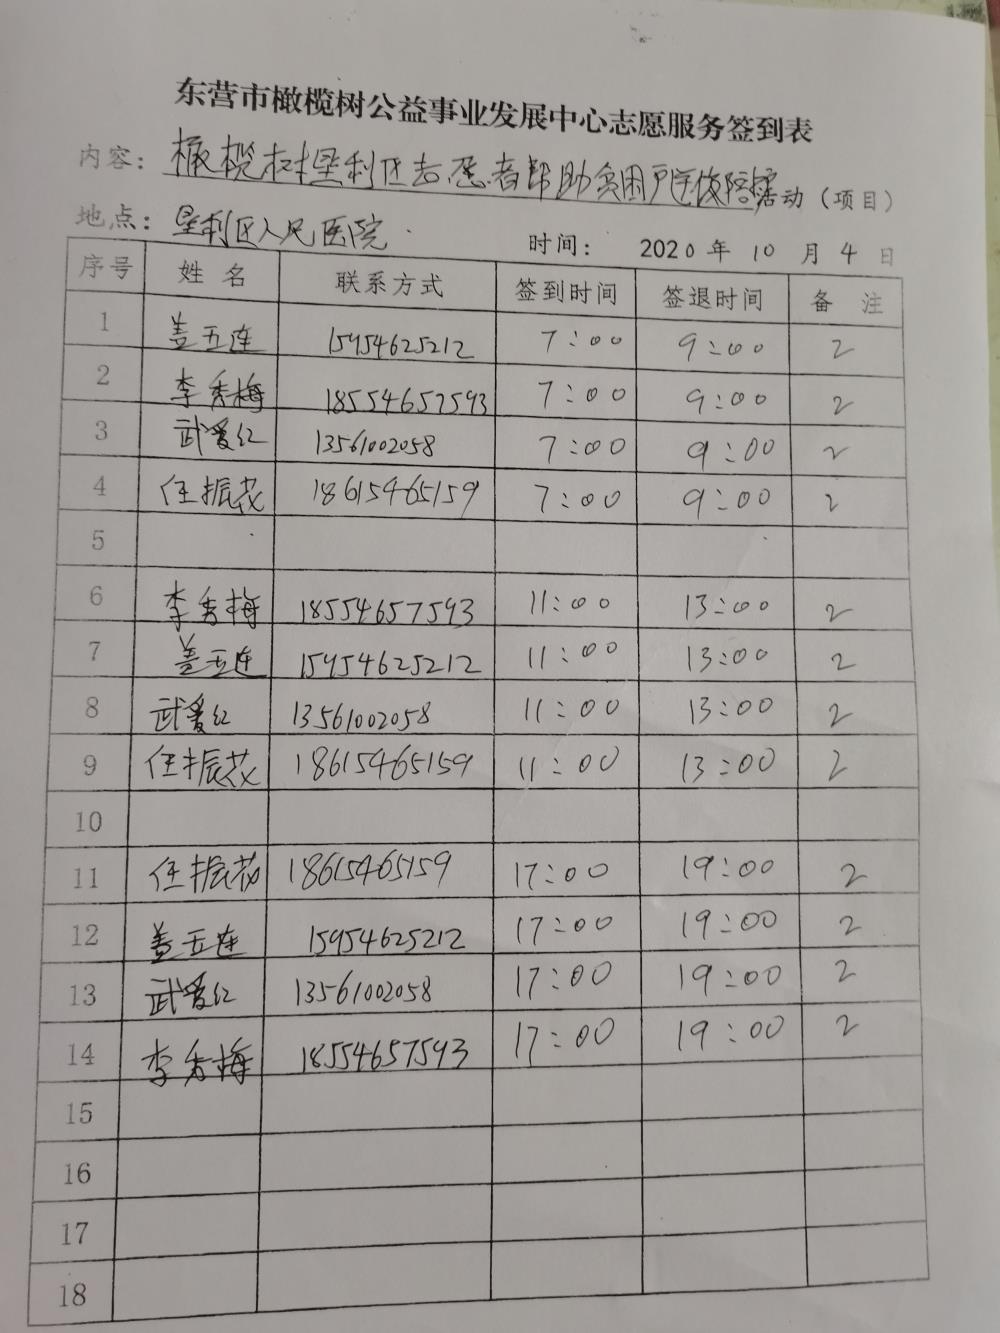 东营市橄榄树公益事业发展中心志愿服务签到表
内容：橄榄树垦利区志愿者帮助贫困户连俊陪 活动（项目）
地点：垦利区人民医院 时间： 2020 年 10 月 4 日
序号 姓名 联系方式 签到时间 签退时间 备 注
1 盖玉连 15954625212 7:00 9:00 2
2 李秀梅 18554657593 7:00 9:00 2
3 武爱红 13561002058 7:00 9:00 2
4 任振花 18615465159 7:00 9:00 2
5
6 李秀梅 18554657593 11:00 13:00 2
7 盖玉连 15954625212 11:00 13:00 2
8 武爱红 13561002058 11:00 13:00 2
9 任振花 18615465159 11:00 13:00 2
10
11 任振花 18615465159 17:00 19:00 2
12 盖玉连 15954625212 17:00 19:00 2
13 武爱红 13561002058 17:00 19:00 2
14 李秀梅 18554657593 17:00 19:00 2
15
16
17
18